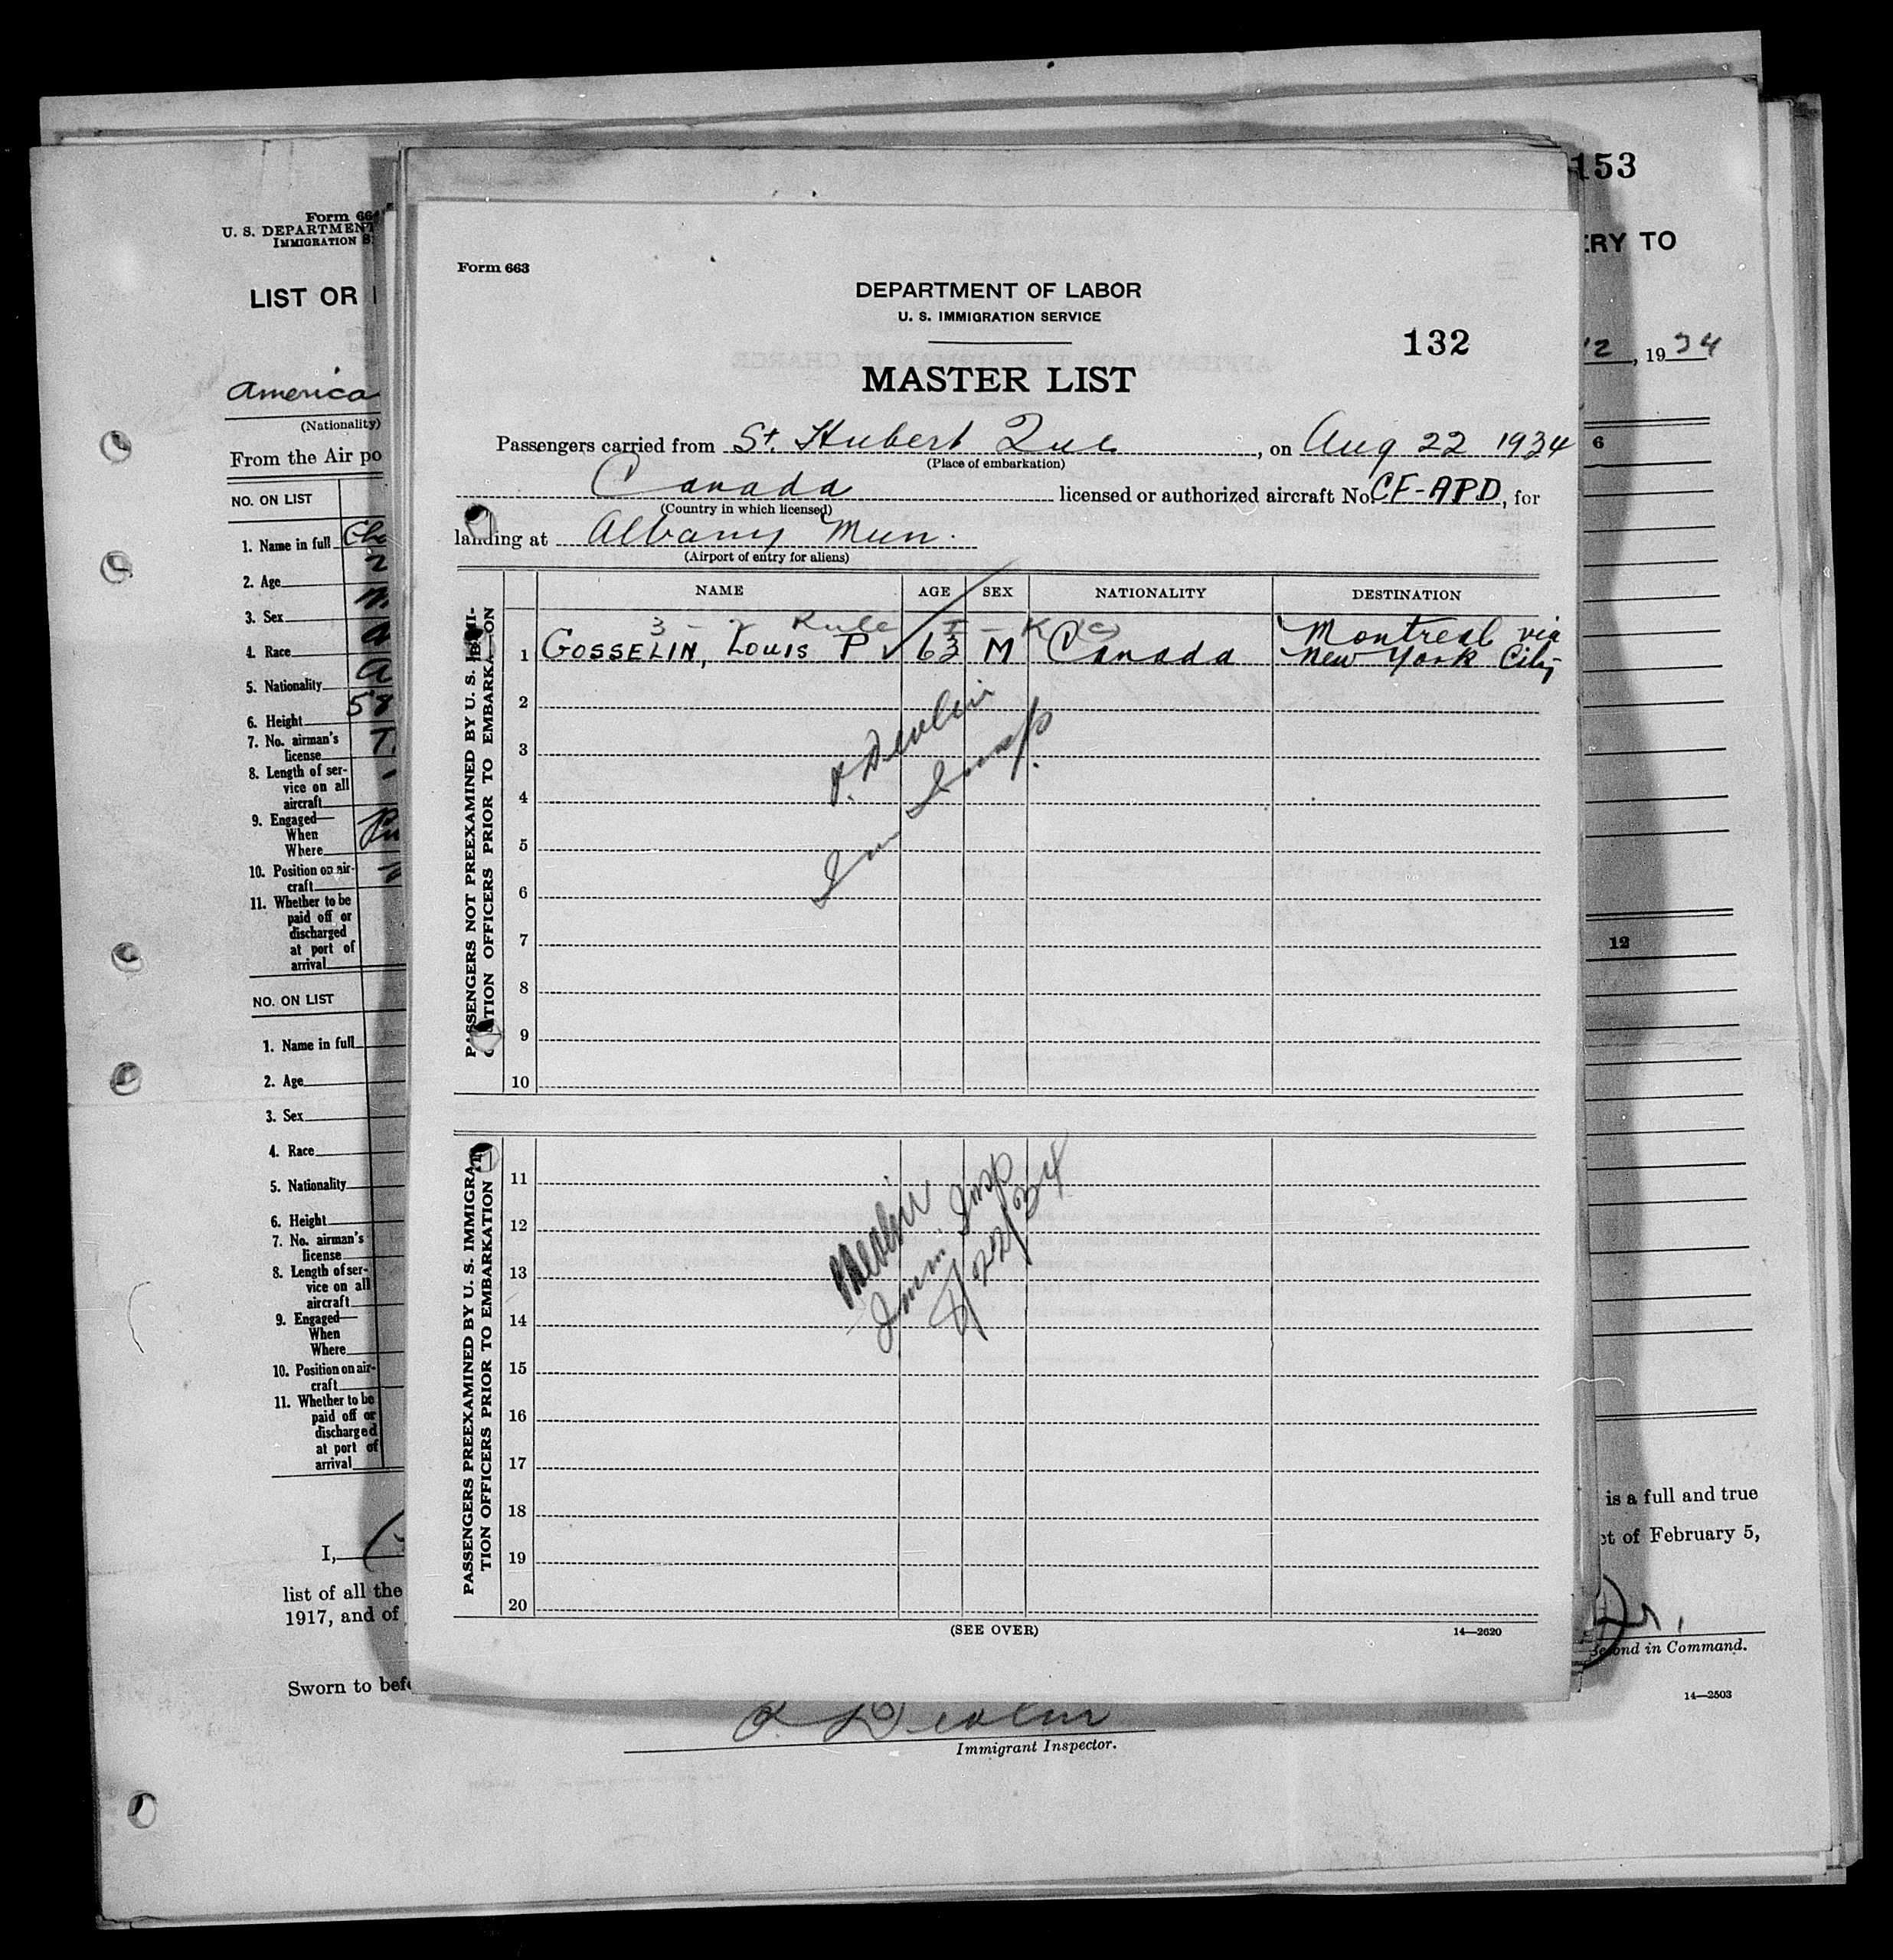 Form 663
DEPARTMENT OF LABOR
U. S. IMMIGRATION SERVICE
132
MASTER LIST
Passengers carried from St. Hubert Que , on Aug 22 1934
(Place of embarkation)
Canada licensed or authorized aircraft No. CF-APD, for
(Country in which licensed)
landing at Albany Mun.
(Airport of entry for aliens)
NAME AGE SEX NATIONALITY DESTINATION
3 - 2 Rule I - K
Montreal via
1 GOSSELIN, LOUIS P 63 M Canada New York City
2
3
4
5
6
7
8
9
10
PASSENGERS NOT PREEXAMINED BY U. S. IMMI-
TION OFFICERS PRIOR TO EMBARKATION
Devlin
Imm Insp.
11
12
13
14
15
16
17
18
19
20
PASSENGERS PREEXAMINED BY U. S. IMMIGRA
TION OFFICERS PRIOR TO EMBARKATION
Devlin
Imm. Insp
8/22/34
(SEE OVER)
14—2620
Form 66
U. S. DEPARTMENT
IMMIGRATION S
LIST OR
America
(Nationality)
From the Air po
NO. ON LIST
1. Name in full
2. Age
3. Sex
4. Race
5. Nationality
6. Height
7. No. airman's
license
8. Length of ser-
vice on all
aircraft
9. Engaged—
When
Where
10. Position on air-
craft
11. Whether to be
paid off or
discharged
at port of
arrival
NO. ON LIST
1. Name in full
2. Age
3. Sex
4. Race
5. Nationality
6. Height
7. No. airman's
license
8. Length of ser-
vice on all
aircraft
9. Engaged—
When
Where
10. Position on air-
craft
11. Whether to be
paid off or
discharged
at port of
arrival
I,
list of all the
1917, and of
Sworn to befo
Devlin
Immigrant Inspector.
153
ERY TO
12, 1934
6
12
is a full and true
ct of February 5,
Second in Command.
14—2503